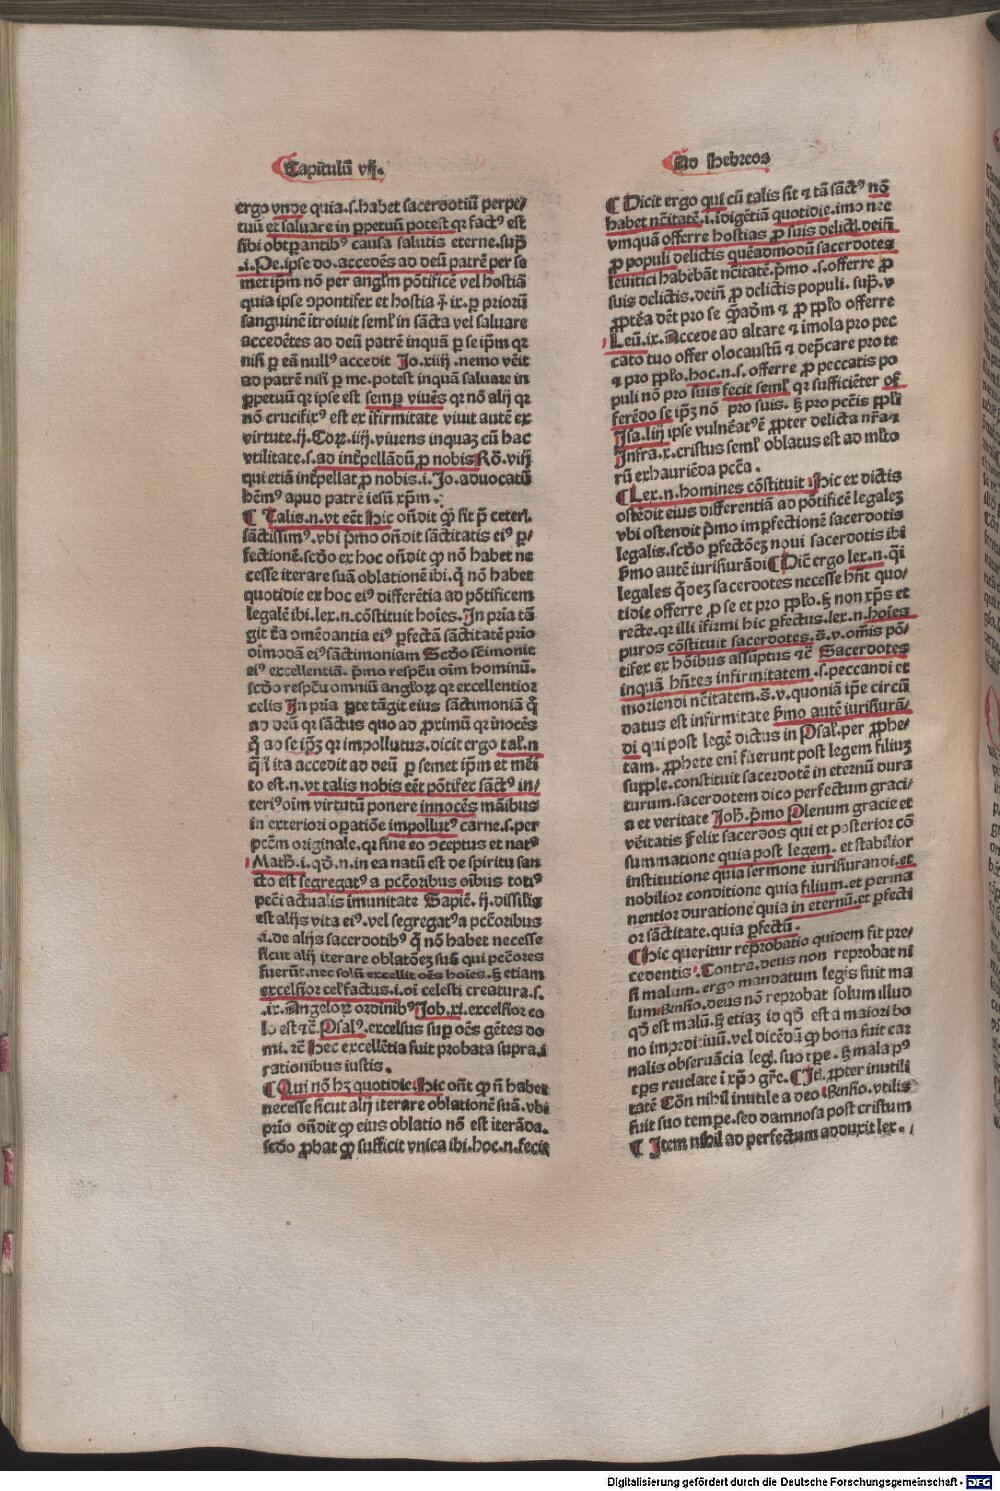 Capitulū vij.
ergo vnde quia.s.habet sacerdotiū perpe/
tuū et saluare in ꝑpetuū potest qꝛ factꝰ est
sibi obtꝑantibꝰ causa salutis eterne.sup̄
.i.De.ipse do.accedēs ad deū patrē per se
met ip̄m nō per angl̄m pōtificē vel hostiā
quia ipse ↄpontifex et hostia q̄ ix.ꝑ prioꝝ
sanguinē ītroiuit seml̄ in sācta vel saluare
accedētes ad deū patrē inquā ꝑ se ip̄m qꝛ
nisi ꝑ eā nullꝰ accedit Jo.xiiij.nemo vēit
ad patrē nisi ꝑ me.potest inquā saluare in
ꝑpetuū qꝛ ipse est semꝑ viuēs qꝛ nō alij qꝛ
nō crucifixꝰ est ex īfirmitate viuit autē ex
virtute.ij.Corꝝ.iiij.viuens inquaꝫ cū hac
vtilitate.s.ad intꝑpellādū ꝓ nobis Rō.viij
qui etiā intꝑpellat ꝓ nobis.i.Jo.aduocatū
hēmꝰ apud patrē iesū xp̄m.
Talis.n.vt eēt Hic oñdit ꝙ sit p̄ ceteri.
sāctissimꝰ.vbi p̄mo oñdit sāctitatis eiꝰ ꝑ/
fectionē.scd̄o ex hoc oñdit ꝙ nō habet ne
cesse iterare suā oblationē ibi.q̄ nō habet
quotidie ex hoc eiꝰ differētia ad pōtificem
legalē ibi.lex.n.cōstituit hoīes.In pria tā
git tīa ↄmēdantia eiꝰ ꝑfectā sāctitatē prio
oīmodā eiꝰ sāctimoniam Scd̄o sc̄imonie
eiꝰ excellentiā.p̄mo respcū oīm hominū.
scd̄o respcū omniū angloꝝ qꝛ excellentior
celis In pria ꝑte tāgit eius sāctimoniā q̄
ad deū qꝛ sāctus quo ad ꝓximū qꝛ inocēs
q̄ ad se ip̄ꝫ qꝛ impollutus.dicit ergo tal̄.n
q̄ ī ita accedit ad deū ꝑ semet ip̄m et mēi
to est.n.vt talis nobis eēt pōtifex sāctꝰ in/
teriꝰ oīm virtutū ponere innocēs māibus
in exteriori oꝑatiōe impollutꝰ carne.s.per
pcc̄m originale.qꝛ sine eo ↄceptus et natꝰ
Math.i.qd̄.n.in ea natū est de spiritu san
cto est segregatꝰ a pcc̄oribus oībus totiꝰ
pcc̄i actualis imunitate Sapiē.ij.dissilis
est alijs vita eiꝰ.vel segregatꝰ a pcc̄oribus
.i.de alijs sacerdotibꝰ q̄ nō habet necesse
sicut alij iterare oblatōeꝫ suā qui pcc̄ores
fuerūt.nec solū excellit oēs hoīes.ꝫ etiam
excelsior cel̄ factus.i.oī celesti creatura.s.
.ix.Angeloꝝ ordinibꝰ Job.xi.excelsior ce
lo est ⁊c̄.Psalꝰ.excelsus sup oēs gētes do
mi.⁊c̄ Hec excellētia fuit probata supra.i
rationibus iustis.
Qui nō hꝫ quotidie.Hic oñt ꝙ n̄ habet
necesse sicut alij iterare oblationē suā.vbi
prio oñdit ꝙ eius oblatio nō est iterāda.
scd̄o ꝓbat ꝙ sufficit vnica ibi.hoc.n.fecit
Ad Hebreos
Dicit ergo qui cū talis sit ⁊ tā sāctꝰ nō
habet nc̄itatē.i.īdigētiā quotidie.imo nec
vmquā offerre hostias ꝓ suis delictꝭ.dein̄
ꝓ populi delictis quēadmodū sacerdotes
leuitici habebāt nc̄itatē.p̄mo.s.offerre ꝓ
suis delictis.dein̄ ꝓ delictis populi.sup̄.v
ꝓptēa dēt pro se q̄madm̄ ⁊ ꝓ pp̄lo offerre
Leuī.ix.Accede ad altare ⁊ imola pro pec
cato tuo offer olocaustū ⁊ dep̄care pro te
⁊ pro pp̄lo.hoc.n.s.offerre ꝓ peccatis po
puli nō pro suis fecit seml̄ qꝛ sufficiēter of
ferēdo se ip̄ꝫ nō pro suis.ꝫ pro pcc̄is pp̄li
Isa.liij ipse vulnēatꝰ ē ꝓpter delicta nr̄a⁊
Infra.x.cristus seml̄ oblatus est ad ml̄to
rū exhauriēda pcc̄a.
Lex.n.homines cōstituit Hic ex dictis
ostēdit eius differentiā ad pōtificē legaleꝫ
vbi ostendit p̄mo imperfectionē sacerdotis
legalis.scd̄o ꝑfectōeꝫ noui sacerdotis ibi
p̄mo autē iurisiurādi Dic̄ ergo lex.n.q̄i
legales q̄deꝫ sacerdotes necesse hn̄t quo/
tidie offerre ꝓ se et pro pp̄lo.ꝫ non xp̄s et
recte.qꝛ illi īfirmi hic ꝑfectus.lex.n.hoies
puros cōstituit sacerdotes.s̄.v.om̄is pō/
tifex ex hōibus assūptus ⁊c̄ Sacerdotes
inquā hn̄tes infirmitatem.s.peccandi et
moriendi nc̄itatem.s̄.v.quoniā ip̄e circū
datus est infirmitate p̄mo autē iurisiurā/
di qui post legē dictus in Psal̄.per ꝓphe/
tam.ꝓphete eni fuerunt post legem filiuꝫ
supple.constituit sacerdotē in eternū dura
turum.sacerdotem dico perfectum graci/
a et veritate Joh.p̄mo Plenum gracie et
vēitatis Felix sacerdos qui et posterior cō
summatione quia post legem.et stabilior
institutione quia sermone iurisiurandi.et
nobilior conditione quia filium.et perma
nentior duratione quia in eternū.et ꝑfecti
or sāctitate.quia ꝑfectū.
Hic queritur reprobatio quidem fit pre/
cedentis.Contra.deus non reprobat ni
si malum.ergo mandatum legis fuit ma
lum.Rn̄sio.deus nō reprobat solum illud
qd̄ est malū.ꝫ etiaꝫ id qd̄ est a maiori bo
no impeditiuū.vel dicēdū ꝙ bona fuit car
nalis obseruācia legl̄.suo tꝑe.ꝫ mala pꝰ
tꝑs reuelate ī xp̄o gr̄e. It̄.ꝓpter inutili
tatē Con̄ nihil inutile a deo Rn̄sio.vtilis
fuit suo tempe.sed damnosa post cristum
Item nihil ad perfectum adduxit lex.
Digitalisierung gefördert durch die Deutsche Forschungsgemeinschaft - DFG